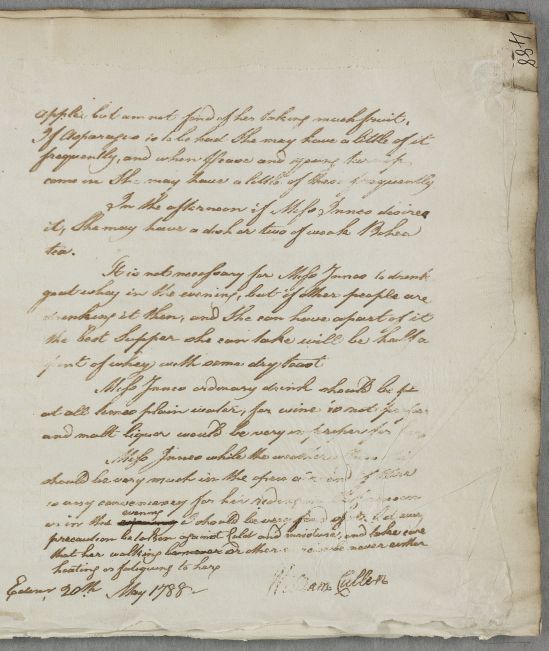 488
apple, but am not fond of her taking much fruit.
If Asparagus is to be had She may have a little of it
frequently, and when Pease and young turnip
come in She may have a little of these frequently
In the afternoon if Miss Innes desires
it, She may have a dish or two of weak Bohea
tea.
It is not necessary for Miss Innes to drink
goat whey in the evening, but if other people are
drinking it then, and She can have a part of it
the best Supper she can take will be half a
pint of whey with some dry toast
Miss Innes ordinary drink should be
at all times plain water, for wine is not proper
and malt liquor would be very improper for
Miss Innes while the weather is
should be very much in the open air and if there
is any conveniency for her riding in the forenoon
or in the evening I should be very fond of it but every
precaution be taken against Cold and moisture, and take care
that her walking or other exercise be never either
heating or fatiguing to her
Edinr. 20th May 1788
William Cullen